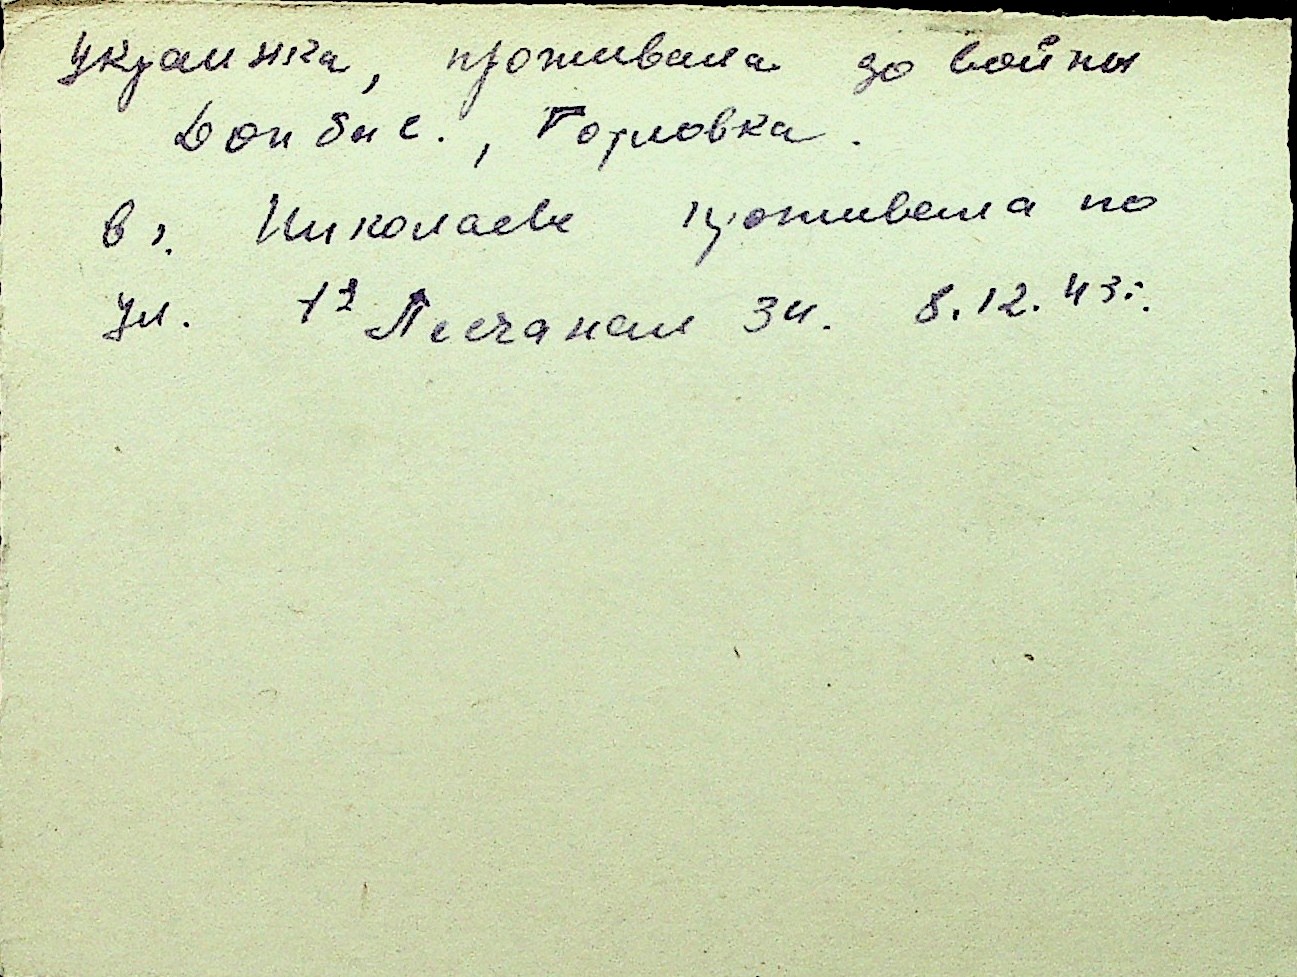 украинка, проживала до войны
Донбас., Горловка.
в г. Николаеве проживала по
ул. 1я Песчаная 34. 8.12.43г.